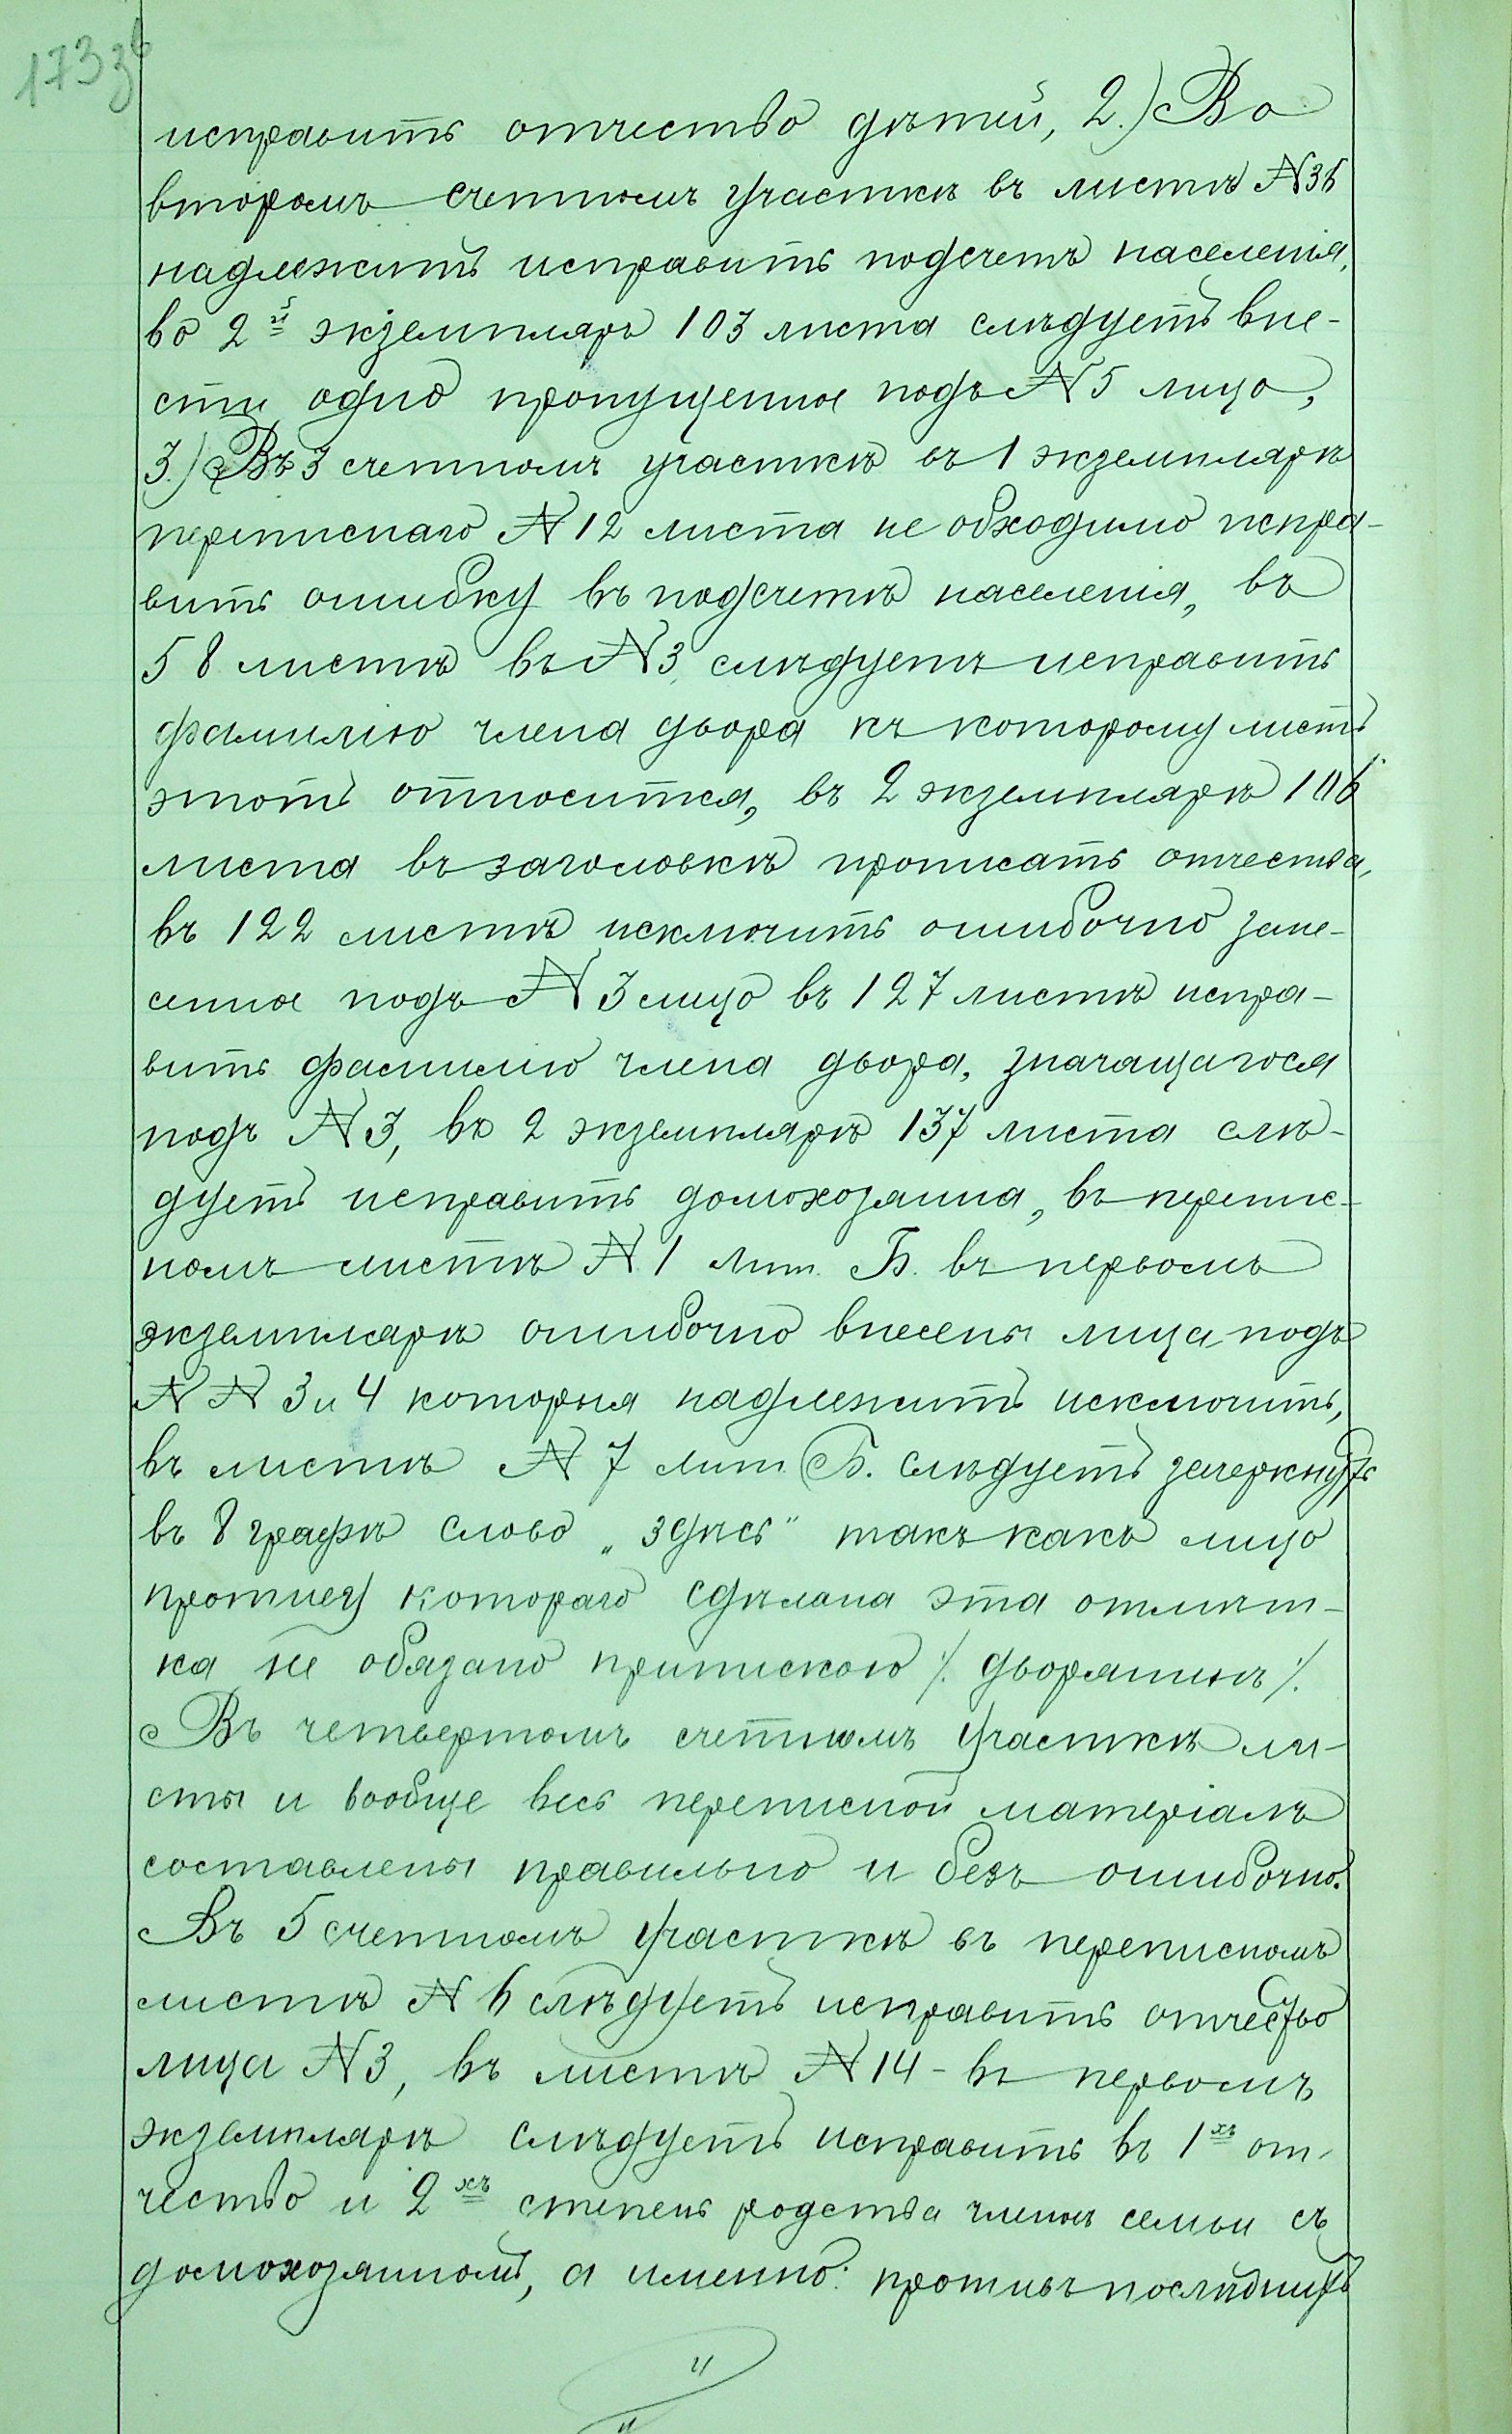 173 зв
исправить отчество дѣтей, 2.) Во
второмъ счетномъ участкѣ въ листѣ №36
надлежитъ исправить подсчетъ населенія,
во 2й экземпляръ 103 листа слѣдуетъ вне-
сти одно пропущенное подъ №5 лицо,
3.) Въ 3 счетномъ участкѣ въ 1 экземплярѣ
переписнаго №12 листа не обходимо испра-
вить ошибку въ подсчетѣ населенія, въ
58 листѣ въ №3 слѣдуетъ исправить
фамилію члена двора къ которому листъ
этотъ относится, въ 2 экземплярѣ 106
листа въ заголовкѣ прописать отчества,
въ 122 листѣ исключить ошибочно зане-
сенное подъ №3 лицо въ 127 листѣ испра-
вить фамилію члена двора, значащагося
подъ №3, въ 2 экземплярѣ 137 листа слѣ-
дуетъ исправить домохозяина, въ перепис-
номъ листѣ №1 лит. Б. въ первомъ
экземплярѣ ошибочно внесены лица подъ
№№ 3 и 4 которыя надлежитъ исключить,
въ листѣ №7 лит. Б. слѣдуетъ зачеркнуть
въ 8 графѣ слово „здѣсь" такъ какъ лицо
противу котораго сдѣлана эта отмѣт-
ка не обязано припискою /. дворянинъ /.
Въ четвертомъ счетномъ участкѣ ли-
сты и вообще весь переписной матеріалъ
составлены правильно и безъ ошибочно.
Въ 5 счетномъ участкѣ въ переписномъ
листѣ №6 слѣдуетъ исправить отчество
лица №3, въ листѣ №14 - въ первомъ
экземплярѣ слѣдуетъ исправить въ 1хъ от-
чество и 2хъ степень родства членовъ семьи съ
домохозяиномъ, а именно: противъ послѣднихъ